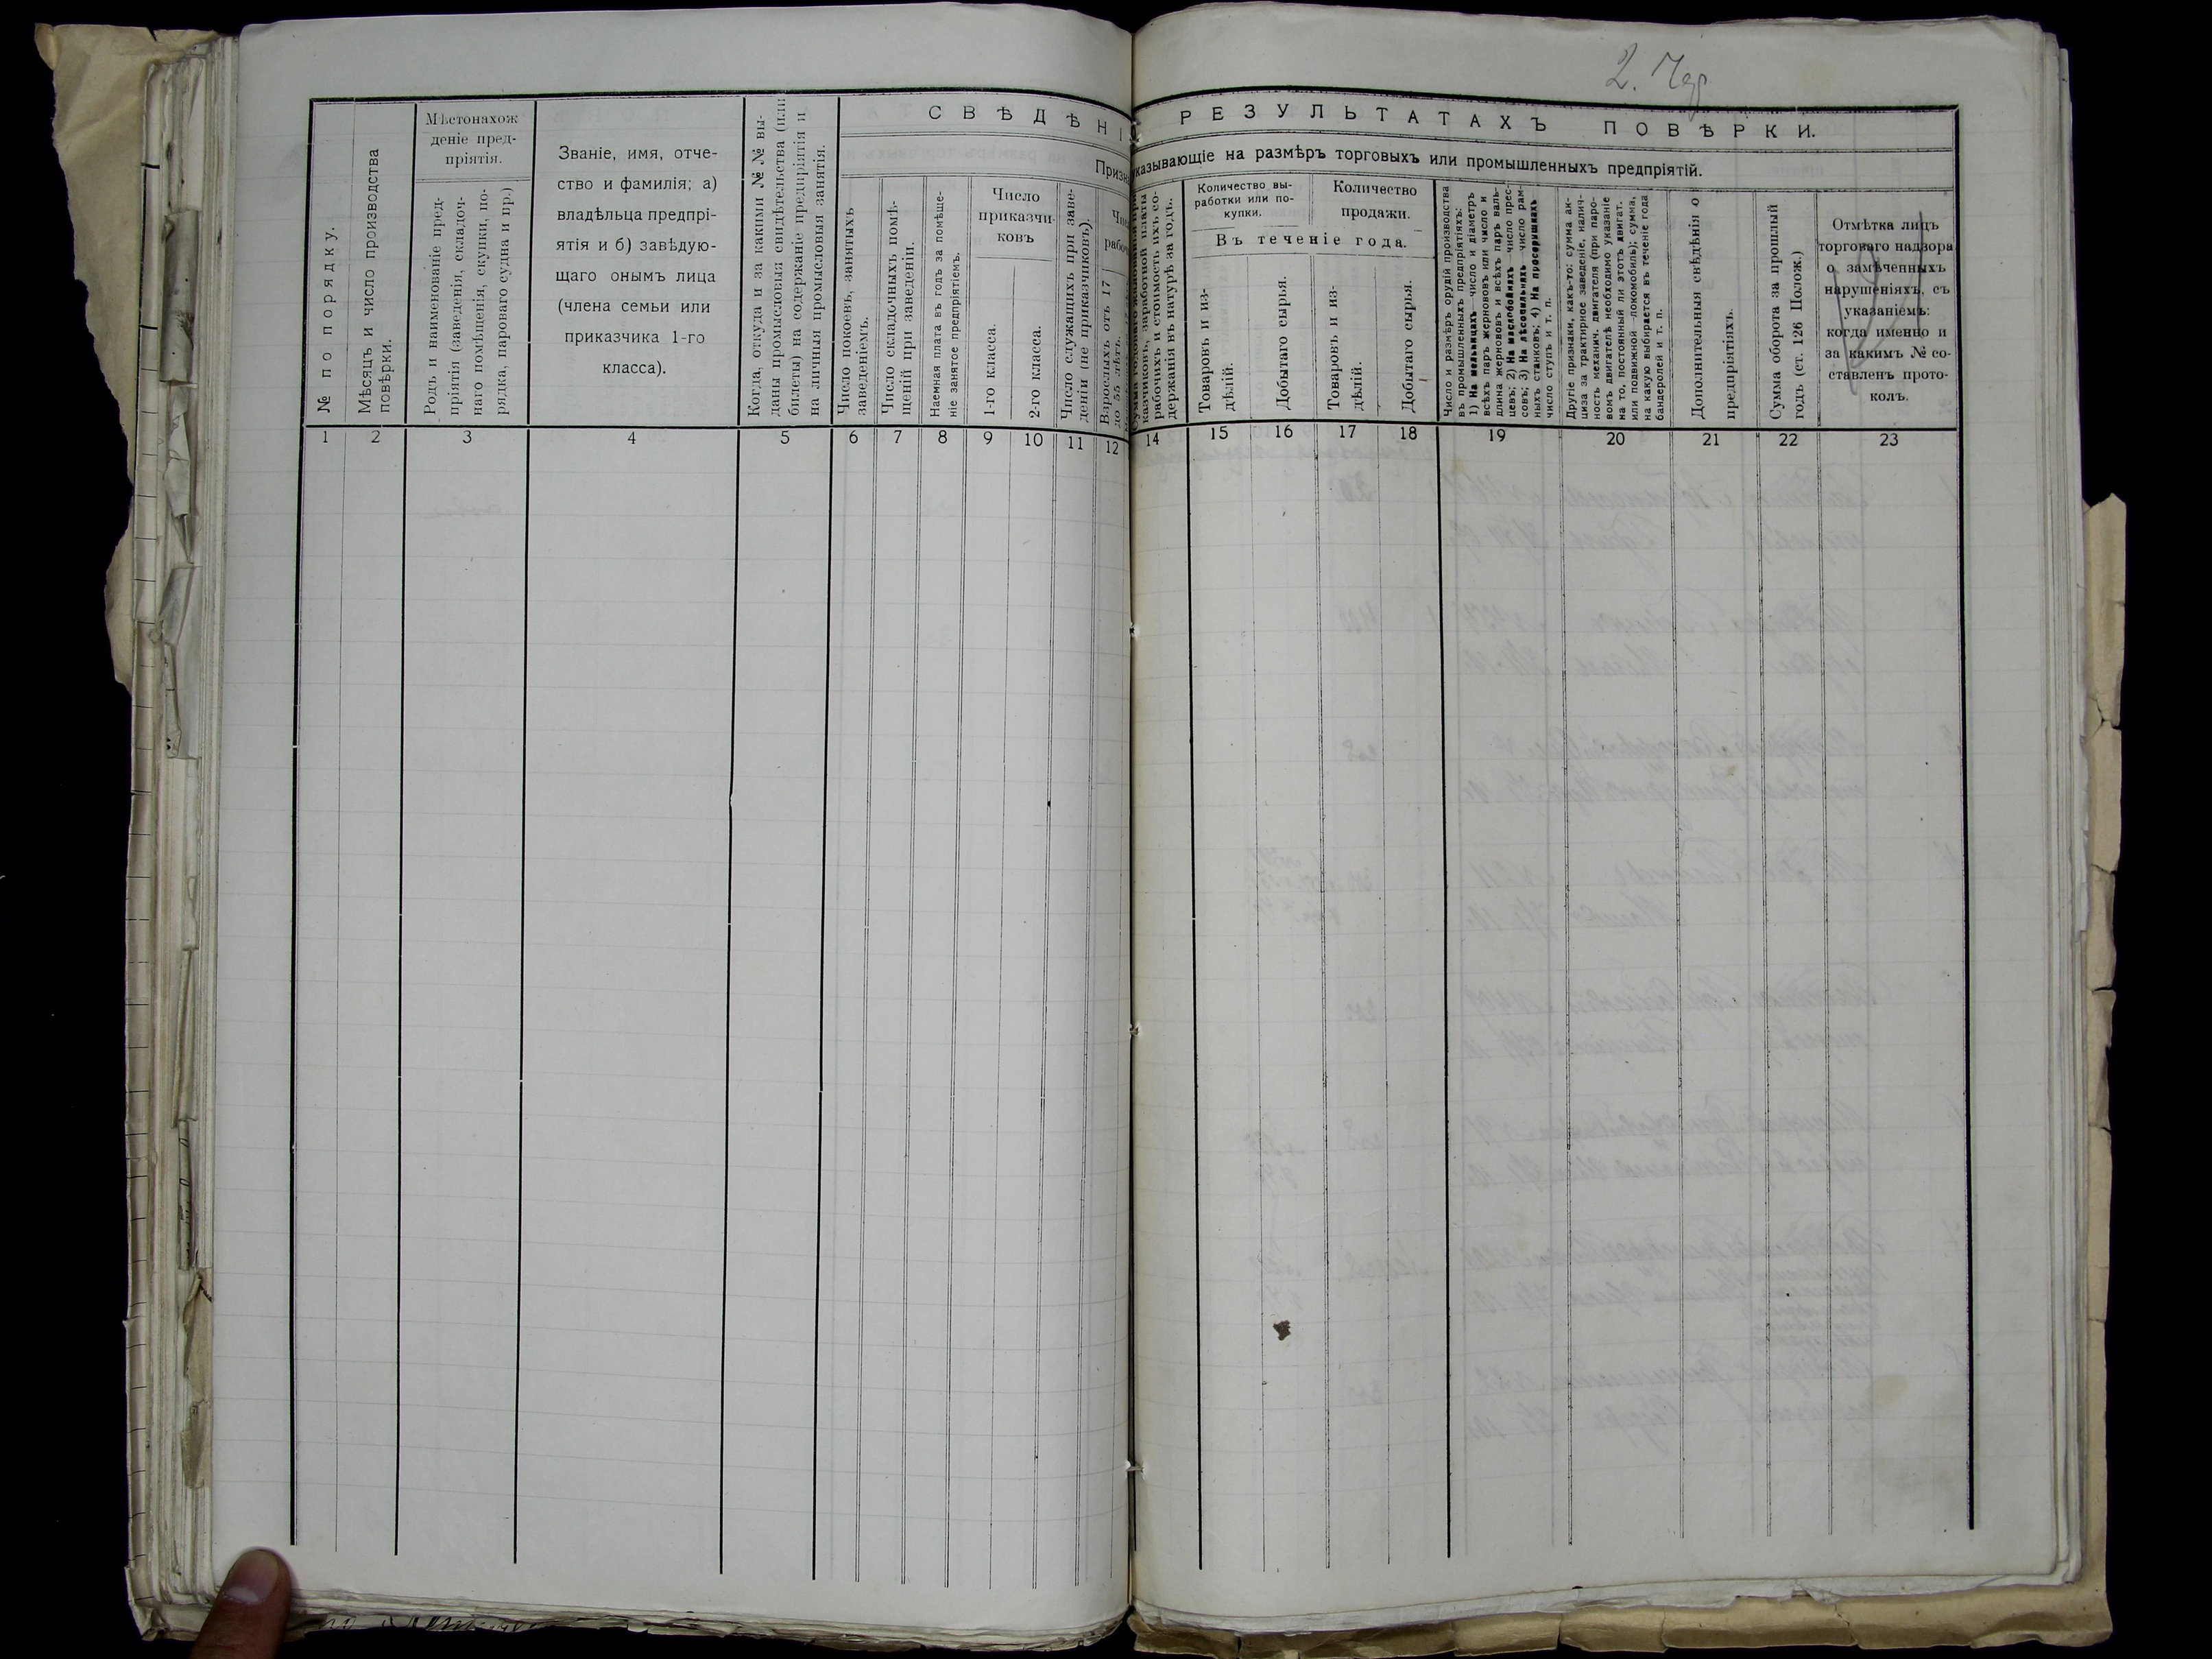 2.
СВѢДѢНІ
РЕЗУЛЬТАТАХЪ ПОВѢРКИ.
Призн
указывающіе на размѣръ торговыхъ или промышленныхъ предпріятій.
№ по порядку.
Мѣсяцъ и число производства
повѣрки.
Мѣстонахож
деніе пред-
пріятія.
Родъ и наименованіе пред-
пріятія (заведенія, складоч-
наго помѣщенія, скупки, по-
рядка, пароваго судна и пр.)
Званіе, имя, отче-
ство и фамилія; а)
владѣльца предпрі-
ятія и б) завѣдую-
щаго онымъ лица
(члена семьи или
приказчика 1-го
класса).
Когда, откуда и за какими №№ вы-
даны промысловыя свидѣтельства (или
билеты) на содержаніе предпріятія и
на личныя промысловыя занятія.
Число покоевъ, занятыхъ
заведеніемъ.
Число складочныхъ помѣ-
щеній при заведеніи.
Наемная плата въ годъ за помѣще-
ніе занятое предпріятіемъ.
Число
приказчи-
ковъ
1-го класса.
2-го класса.
Число служащихъ при заве-
деніи (не приказчиковъ).
Чис
рабоч
Взрослыхъ отъ 17
до 55 лѣтъ.
казчиковъ, заработной платы
рабочихъ и стоимость ихъ со-
держанія въ натурѣ за годъ.
Количество вы-
работки или по-
купки.
Количество
продажи.
Въ теченіе года.
Товаровъ и из-
дѣлій.
Добытаго сырья.
Товаровъ и из-
дѣлій.
Добытаго сырья.
Число и размѣръ орудій производства
въ промышленныхъ предпріятіяхъ:
1) На мельницахъ—число и діаметръ
всѣхъ паръ жернововъ или число и
длина жерновъ и всѣхъ паръ валь-
цевъ; 2) На маслобойняхъ—число прес-
совъ; 3) На лѣсопильняхъ—число рам-
ныхъ станковъ; 4) На просорушкахъ
число ступъ и т. п.
Другіе признаки, какъ-то: сумма ак-
циза за трактирное заведеніе, налич-
ность механич. двигателя (при паро-
вомъ двигателѣ необходимо указаніе
на то, постоянный ли этотъ двигат.
или подвижной—локомобиль); сумма,
на какую выбирается въ теченіе года
бандеролей и т. п.
Дополнительныя свѣдѣнія о
предпріятіяхъ.
Сумма оборота за прошлый
годъ (ст. 126 Полож.)
Отмѣтка лицъ
торговаго надзора
о замѣченныхъ
нарушеніяхъ, съ
указаніемъ:
когда именно и
за какимъ № со-
ставленъ прото-
колъ.
1 2 3 4 5 6 7 8 9 10 11 12 14 15 16 17 18 19 20 21 22 23